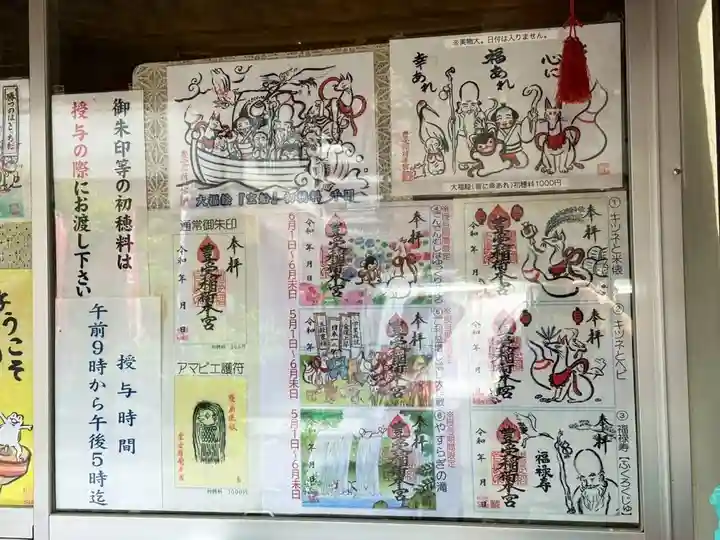 御朱印等の初穂料は
授与の際にお渡し下さい
授与時間
午前9時から午後5時迄
ようこそ
大福絵『宝船』初穂料 千円
※美物大。日付は入りません。
心に
福あれ
幸あれ
大福絵(皆に幸あれ)初穂料1000円
通常御朱印
奉拝
豊受稲荷本宮
令和 年 月 日
アマビエ護符
初穂料 1000円
6月1日~6月末日
奉拝
豊受稲荷本宮
令和 年 月 日
5月1日~6月末日
奉拝
豊受稲荷本宮
令和 年 月 日
⑥やすらぎの滝
5月1日~6月末日
奉拝
豊受稲荷本宮
令和 年 月 日
①キツネと米俵
奉拝
豊受稲荷本宮
令和 年 月 日
②キツネとヘビ
奉拝
豊受稲荷本宮
令和 年 月 日
③福禄寿【ふくろくじゅ】
奉拝
豊受稲荷本宮
福禄寿
令和 年 月 日